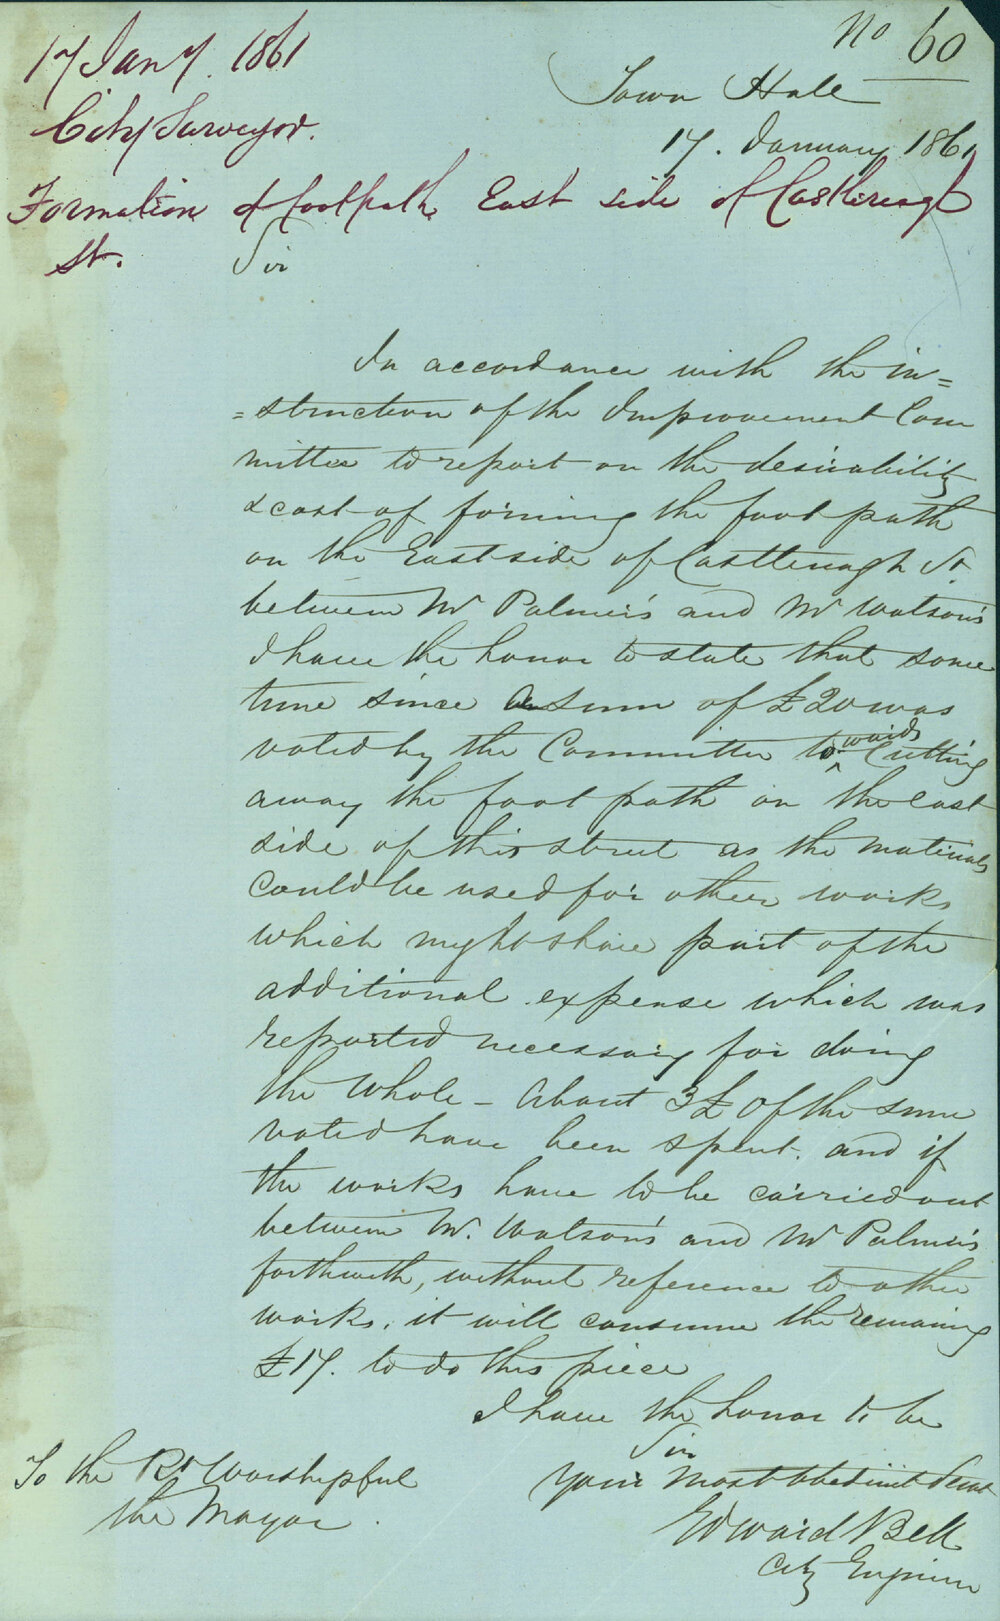 No 60
17 Jany. 1861
City Surveyor.
Town Hall
17. January 1861
Formation of footpath, East side of Castlereagh
St.
Sir
In accordance with the in=
=struction of the Improvement Com
mittee to report on the desirability
& cost of forming the foot path
on the East side of Castlereagh St.
between Mr Palmer's and Mr Watson's
I have the honor to state that some
time since a sum of £20 was
voted by the Committee towards Cutting
away the foot path on the east
side of this street as the materials
could be used for other works
which might share part of the
additional expense which was
reported necessary for doing
the whole - About 3£ of the sum
voted have been spent. and if
the works have to be carried out
between Mr. Watson's and Mr Palmer's
forthwith, without reference to other
works, it will consume the remaining
£17. to do this piece
I have the honor to be
Sir
Your most obedient Servt
Edward Bell
City Engineer
To the Rt Worshipful
the Mayor.